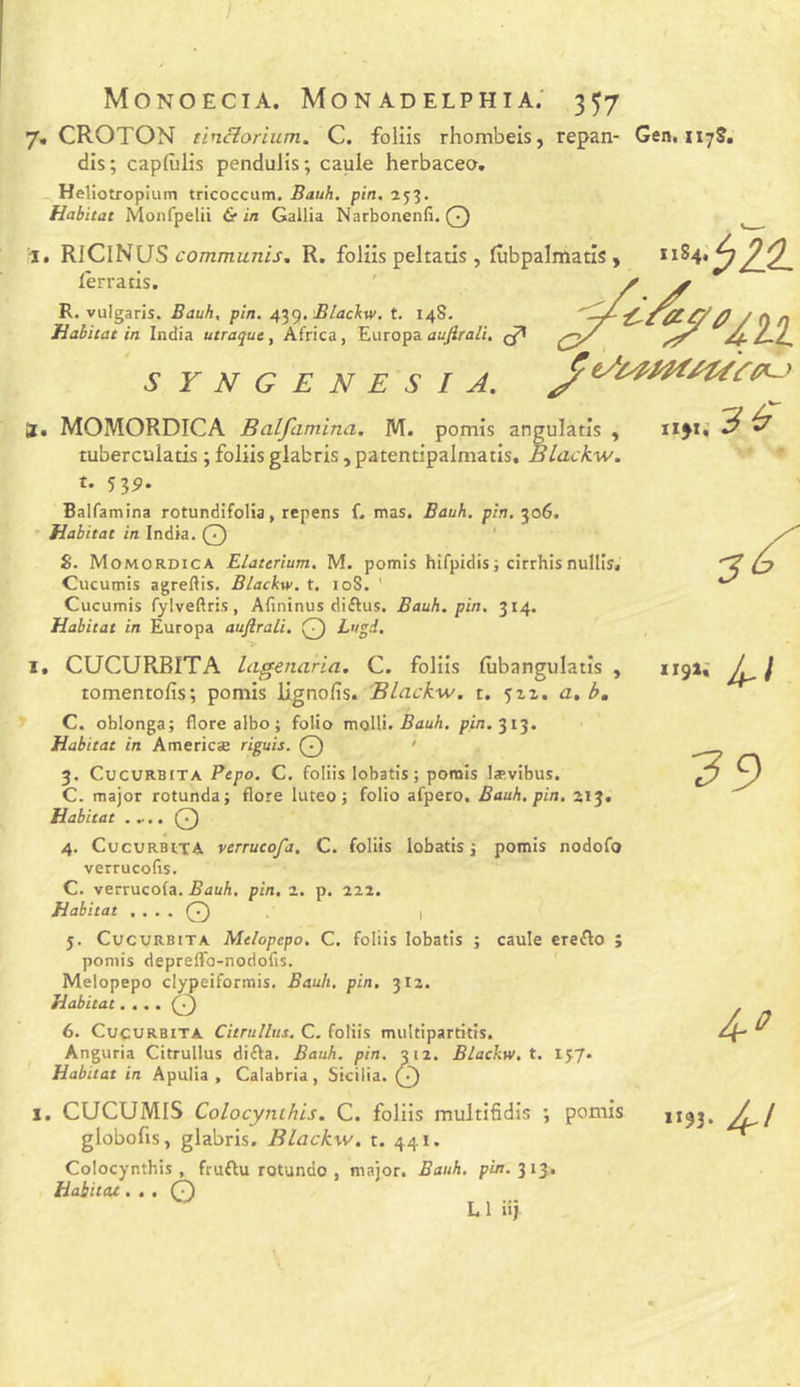 MONOECIA. MONADELPHIA. 357
7. CROTON tinctorium. C. foliis rhombeis, repan- Gen. 1178.
dis; capſulis pendulis; caule herbaceo.
Heliotropium tricoccum. Bauh. pin. 253.
Habitat Monſpelii & in Gallia Narbonenſi. ☉
1. RICINUS communis. R. foliis peltatis, ſubpalmatis, 1184. 522
ſerratis.
R. vulgaris. Bauh. pin. 439. Blackw. t. 148.
Habitat in India utraque, Africa, Europa auſtrali. ♂
SYNGENESIA.
1. MOMORDICA Balſamina. M. pomis angulatis, 1191. 36
tuberculatis; foliis glabris, patentipalmatis. Blackw.
t. 539.
Balſamina rotundifolia, repens ſ. mas. Bauh. pin. 306.
Habitat in India. ☉
8. MOMORDICA Elaterium. M. pomis hiſpidis; cirrhis nullis. 36
Cucumis agreſtis. Blackw. t. 108.
Cucumis ſylveſtris, Aſininus dictus. Bauh. pin. 314.
Habitat in Europa auſtrali. ☉ Lugd.
1. CUCURBITA lagenaria. C. foliis ſubangulatis, 1192. 41
tomentoſis; pomis lignoſis. Blackw. t. 522. a. b.
C. oblonga; flore albo; folio molli. Bauh. pin. 313.
Habitat in Americæ riguis. ☉
3. CUCURBITA Pepo. C. foliis lobatis; pomis lævibus. 39
C. major rotunda; flore luteo; folio aſpero. Bauh. pin. 213.
Habitat .... ☉
4. CUCURBITA verrucoſa. C. foliis lobatis; pomis nodoſo
verrucoſis.
C. verrucoſa. Bauh. pin. 2. p. 222.
Habitat .... ☉
5. CUCURBITA Melopepo. C. foliis lobatis; caule erecto;
pomis depreſſo-nodoſis.
Melopepo clypeiformis. Bauh. pin. 312.
Habitat .... ☉
6. CUCURBITA Citrullus. C. foliis multipartitis. 40
Anguria Citrullus dicta. Bauh. pin. 312. Blackw. t. 157.
Habitat in Apulia, Calabria, Sicilia. ☉
1. CUCUMIS Colocynthis. C. foliis multifidis; pomis 1193. 41
globoſis, glabris. Blackw. t. 441.
Colocynthis, fructu rotundo, major. Bauh. pin. 313.
Habitat ... ☉
Ll iij